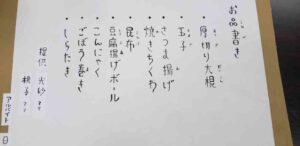 お品書き
・厚切り大根
・玉子
・さつま揚げ
・焼きちくわ
・昆布
・豆腐揚げボール
・こんにゃく
・ごぼう巻き
・しらたき
提供
アルバイト